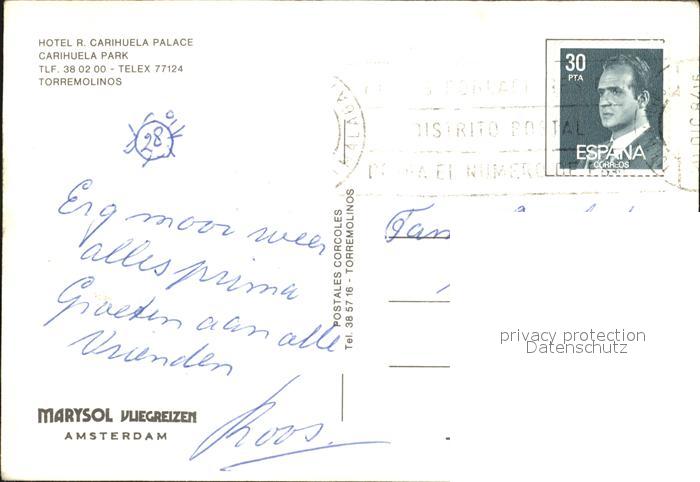 HOTEL R. CARIHUELA PALACE
CARIHUELA PARK
TLF. 38 02 00 - TELEX 77124
TORREMOLINOS
28
Erg mooi weer
alles prima
Groeten aan alle
Vrienden
Roos.
MARYSOL VLIEGREIZEN
AMSTERDAM
POSTALES CORCOLES
Tel. 38 57 16 - TORREMOLINOS
30
PTA
ESPAÑA
CORREOS
DISTRITO POSTAL
EL NUMERO DE
Fam
privacy protection
Datenschutz